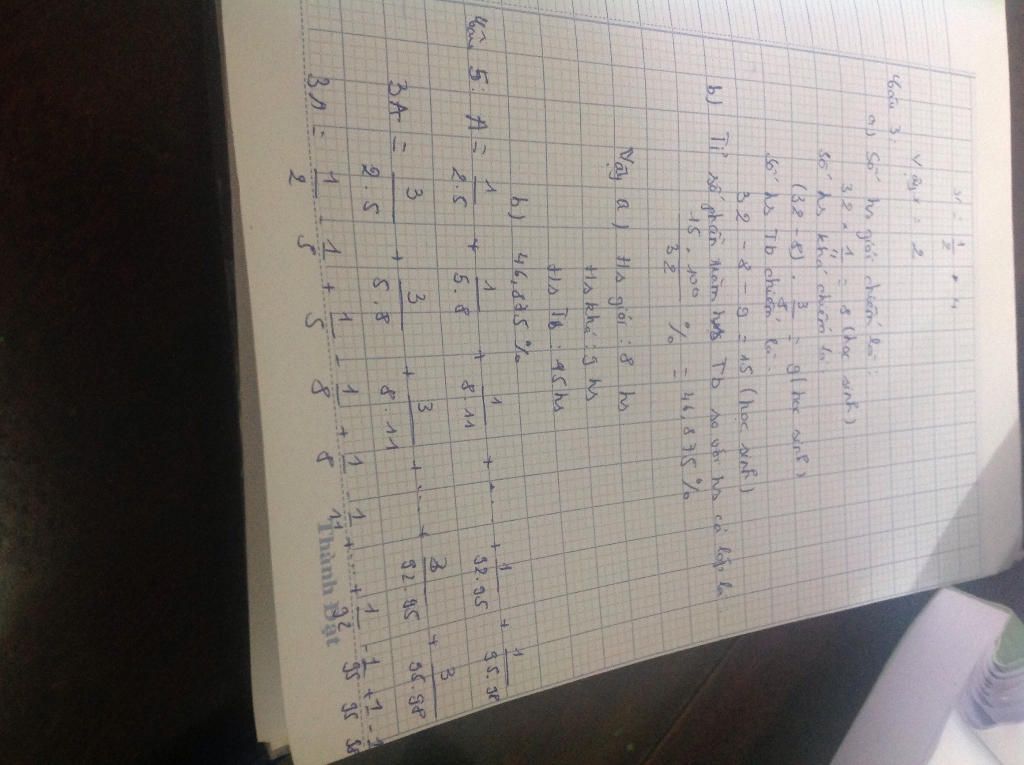 Vậy x = 2
Câu 3:
a) Số hs giỏi chiếm là:
32 . 1/4 = 8 (học sinh)
số hs khá chiếm là:
(32 - 8) . 3/8 = 9 (học sinh)
số hs Tb chiếm là:
32 - 8 - 9 = 15 (học sinh)
b) Tỉ số phần trăm hs Tb so với hs cả lớp là
15 . 100 / 32 % = 46,875 %
Vậy a) Hs giỏi : 8 hs
Hs khá : 9 hs
Hs Tb : 15 hs
b) 46,875 %
Câu 5: A = 1/2.5 + 1/5.8 + 1/8.11 + ... + 1/92.95 + 1/95.98
3A = 3/2.5 + 3/5.8 + 3/8.11 + ... + 3/92.95 + 3/95.98
3A = 1/2 - 1/5 + 1/5 - 1/8 + 1/8 - 1/11 + ... + 1/92 - 1/95 + 1/95 -
Thành Đạt